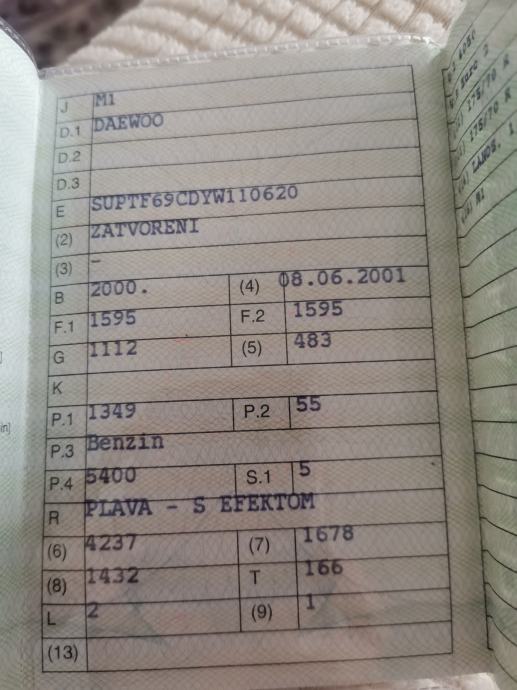 J M1
D.1 DAEWOO
D.2
D.3
E SUPTF69CDYW110620
(2) ZATVORENI
(3) –
B 2000. (4) 08.06.2001
F.1 1595 F.2 1595
G 1112 (5) 483
K
P.1 1349 P.2 55
P.3 Benzin
P.4 5400 S.1 5
R PLAVA - S EFEKTOM
(6) 4237 (7) 1678
(8) 1432 T 166
L 2 (9) 1
(13)
in]
175/70 R
175/70 R
LANOS, 1